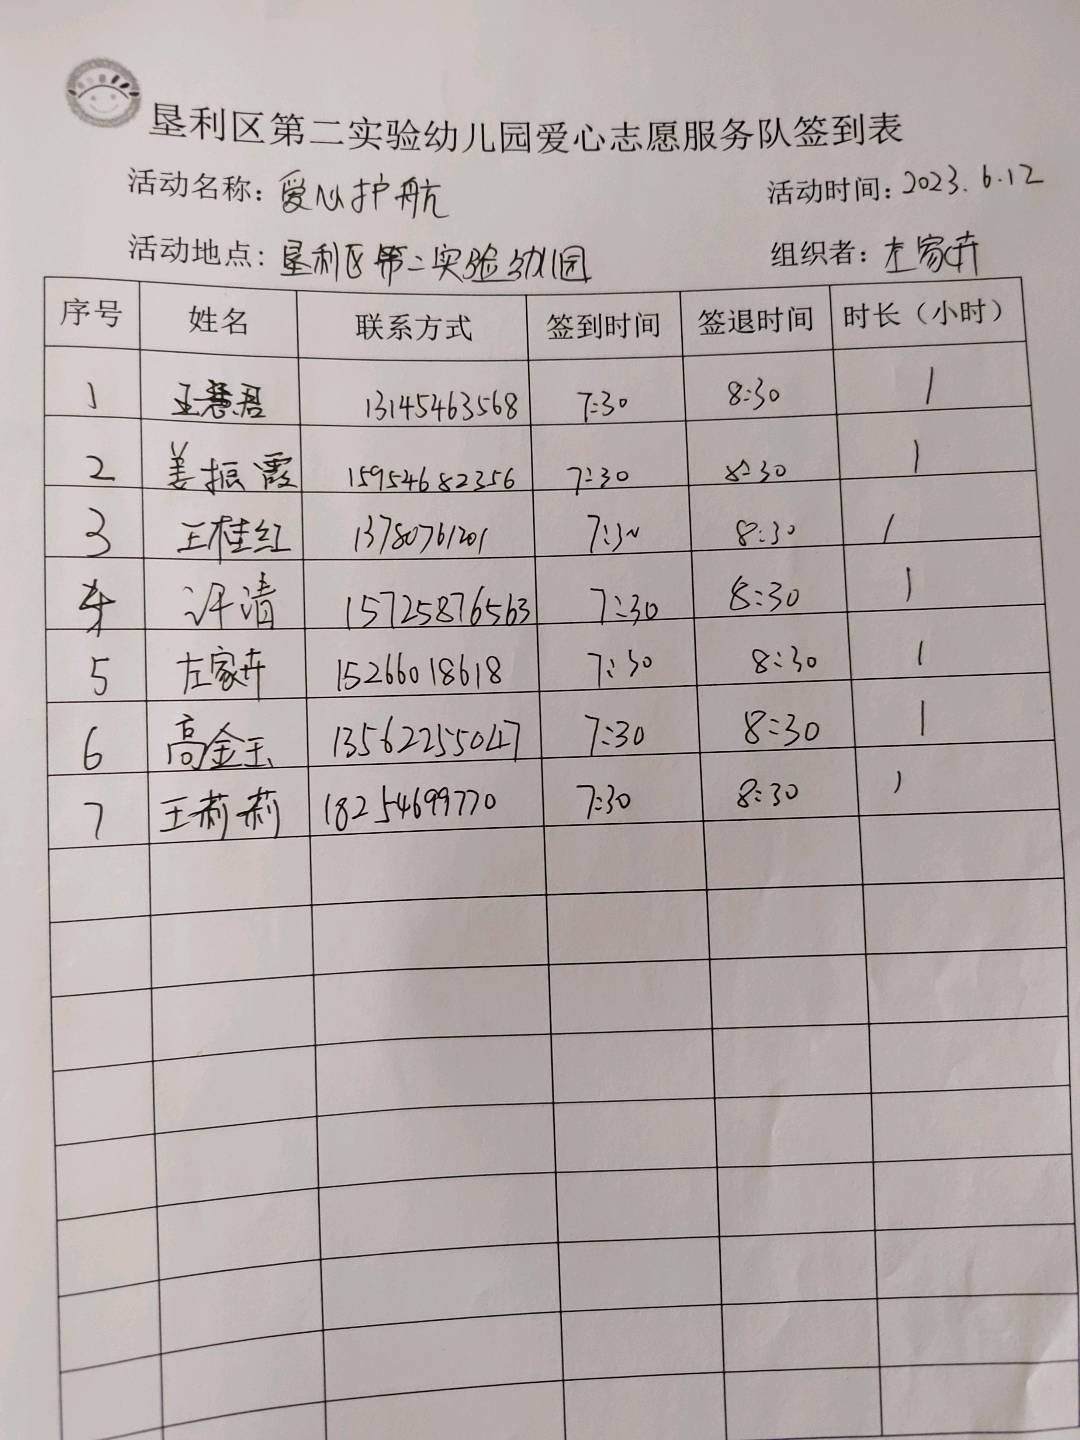 垦利区第二实验幼儿园爱心志愿服务队签到表
活动名称：爱心护航 活动时间：2023.6.12
活动地点：垦利区第二实验幼儿园 组织者：左家卉
序号 姓名 联系方式 签到时间 签退时间 时长（小时）
1 王慧君 13145463568 7:30 8:30 1
2 姜振霞 15954682356 7:30 8:30 1
3 王桂红 13780761201 7:30 8:30 1
4 许清 15725876563 7:30 8:30 1
5 左家卉 15266018618 7:30 8:30 1
6 高金玉 13562255047 7:30 8:30 1
7 王莉莉 18254699770 7:30 8:30 1